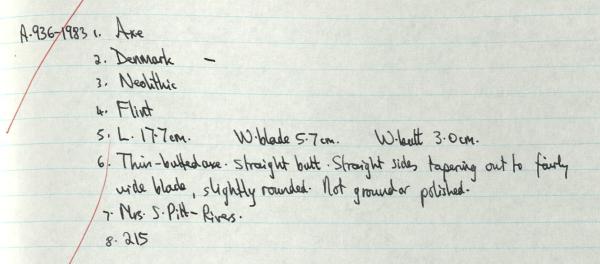 A.936-1983 1. Axe
2. Denmark -
3. Neolithic
4. Flint
5. L. 17.7cm. W.blade 5.7cm. W.butt 3.0cm.
6. Thin-butted axe. Straight butt. Straight sides tapering out to fairly
wide blade, slightly rounded. Not ground or polished.
7. Mrs. S. Pitt-Rivers.
8. 215